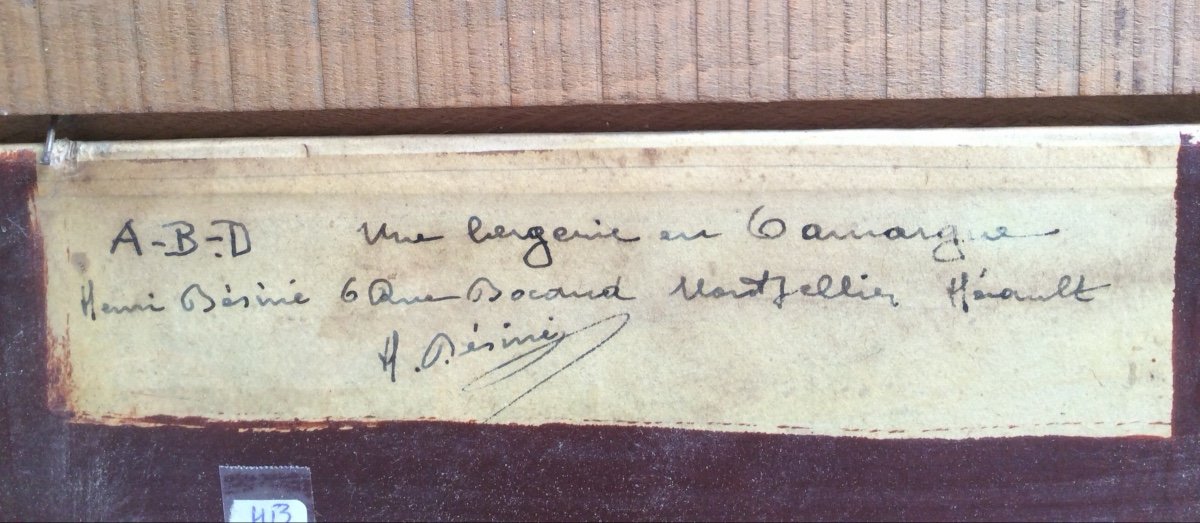 A-B-D Une bergerie en Camargue
Henri Bésiné 6 Rue Bocaud Montpellier Hérault
H. Bésiné
HB